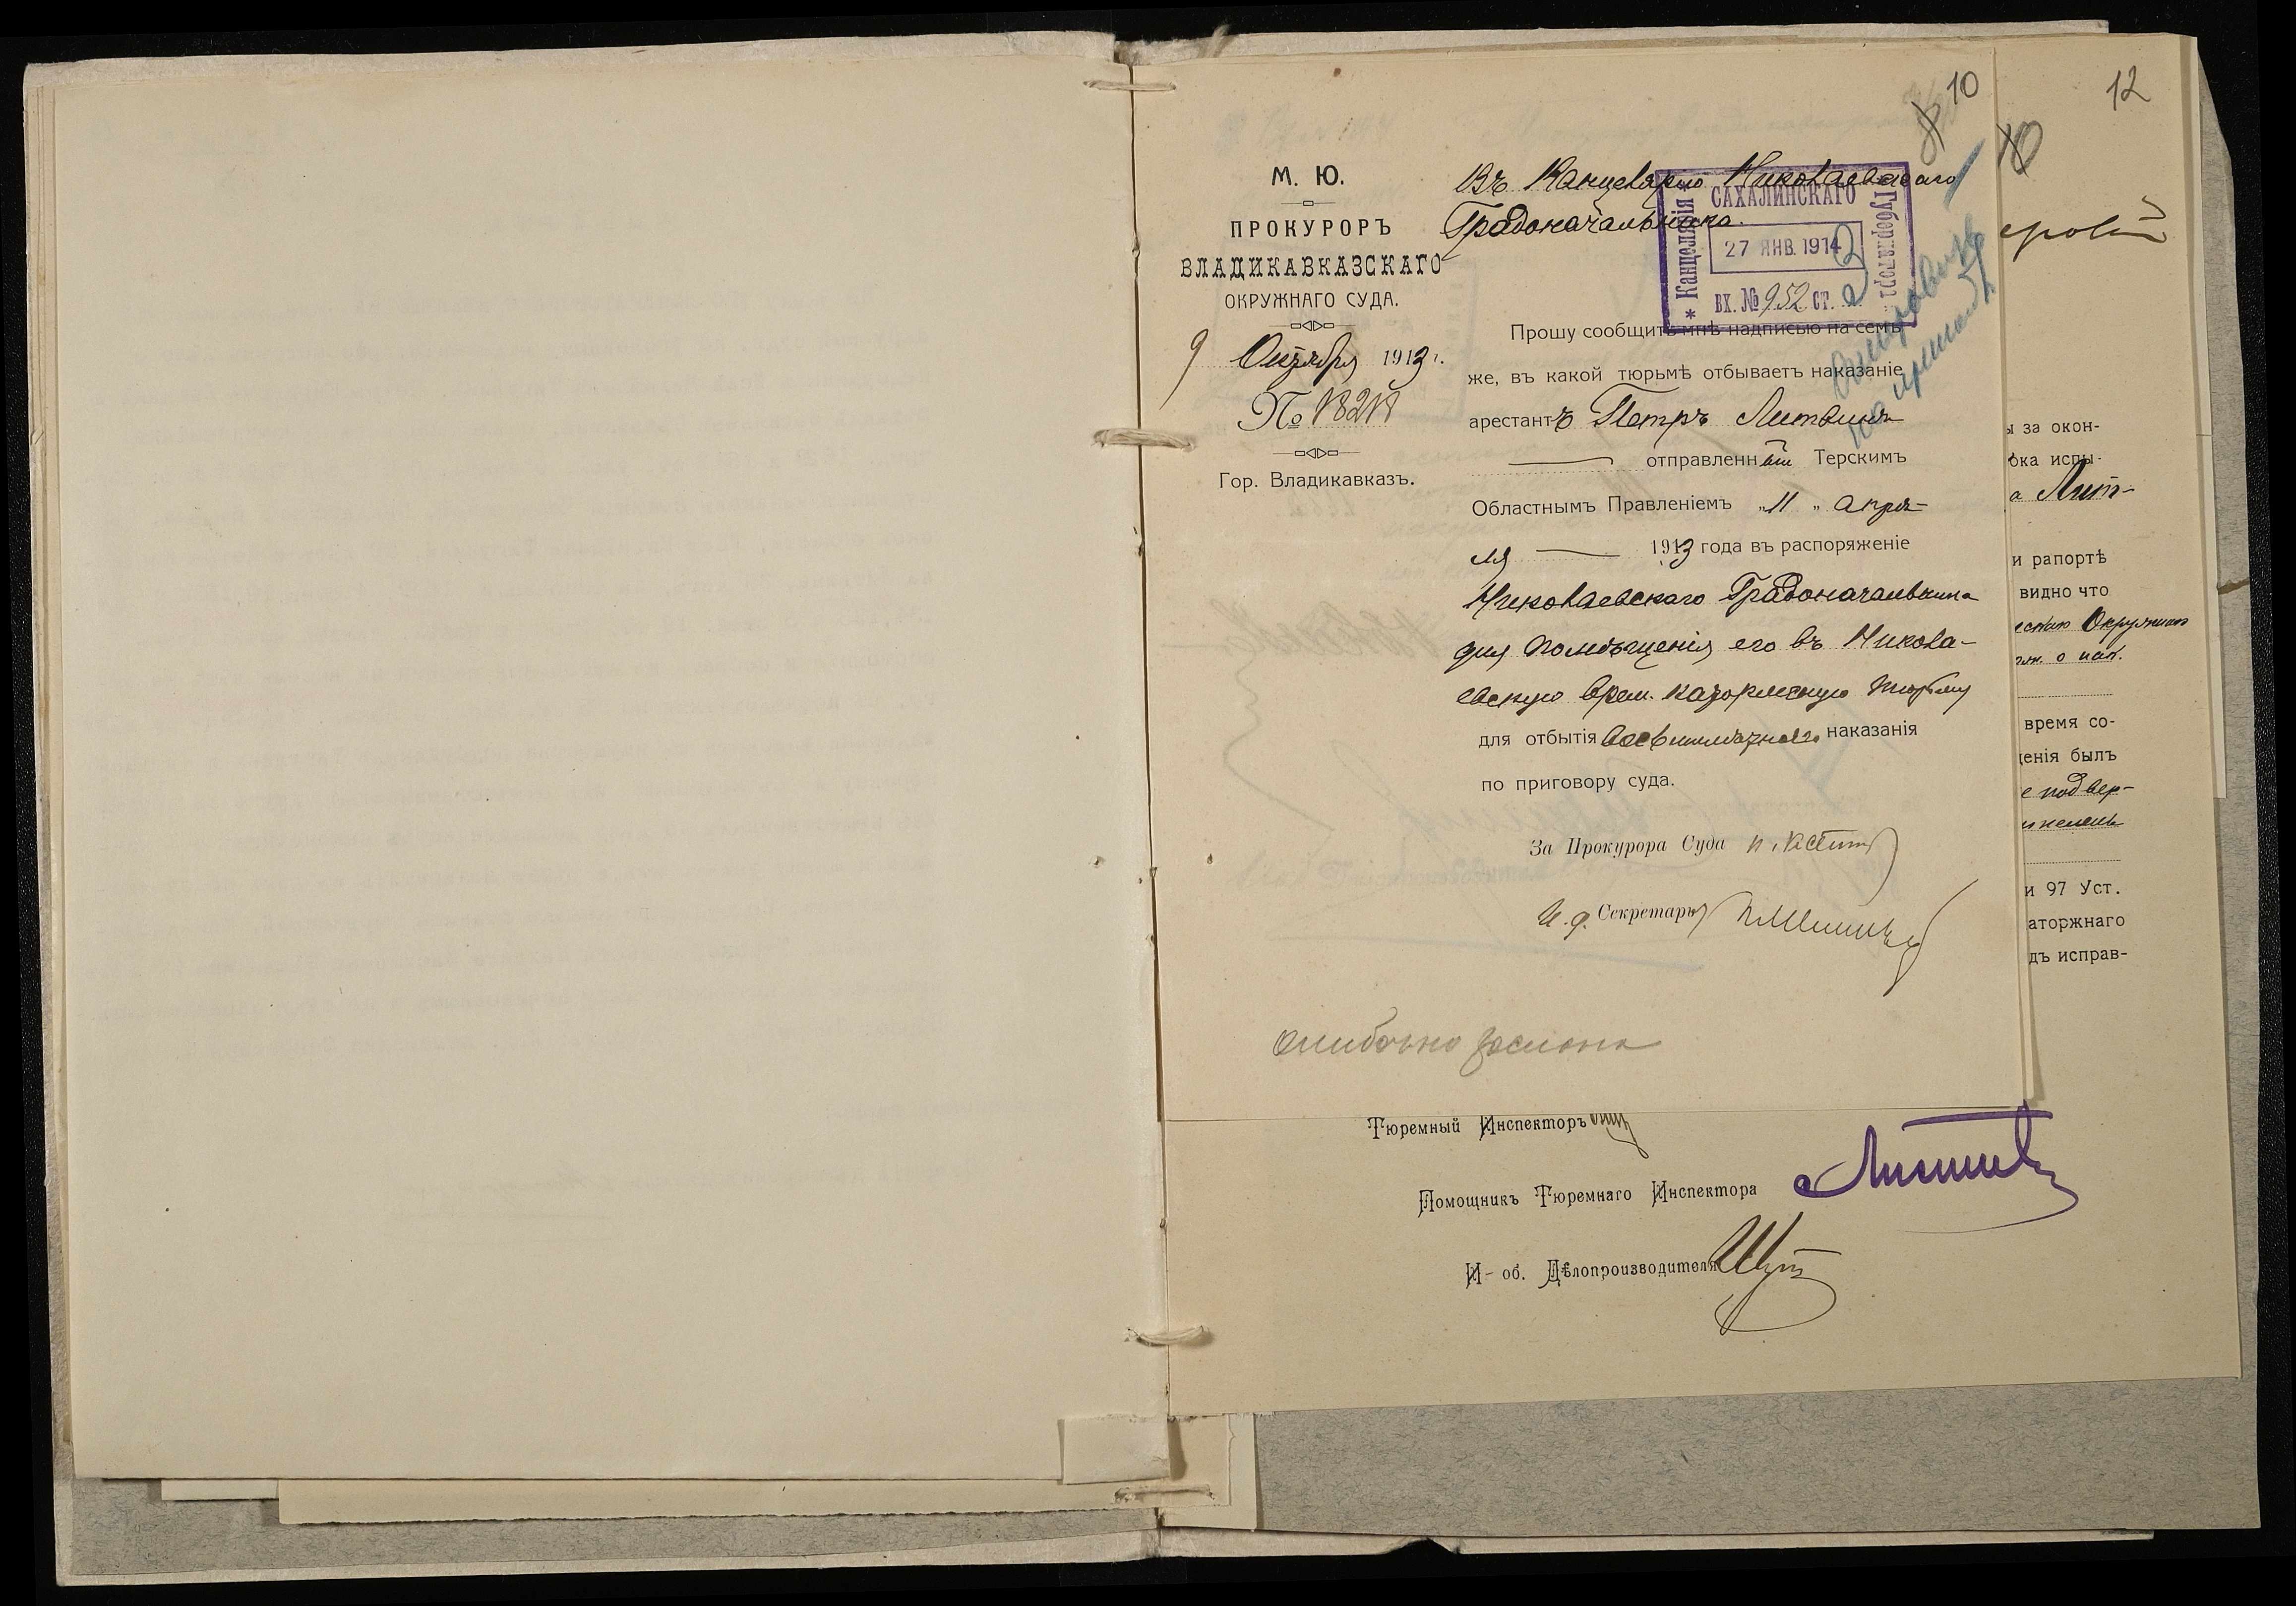 10
12
М. Ю.
ПРОКУРОРЪ
ВЛАДИКАВКАЗСКАГО
ОКРУЖНАГО СУДА.
9 Октября 1913 г.
№ 18218
Гор. Владикавказъ.
Въ Канцелярію Николаевскаго
Градоначальника.
* Канцелярія * САХАЛИНСКАГО Губернатора
27 ЯНВ. 1914
ВХ. № 952 СТ. 2
Прошу сообщить мнѣ надписью на семъ
же, въ какой тюрьмѣ отбываетъ наказаніе
арестантъ Петръ Литвинъ
отправленный Терскимъ
Областнымъ Правленіемъ „11„ апрѣ-
ля 1913 года въ распоряженіе
Николаевскаго Градоначальника
для помѣщенія его въ Никола-
евскую врем. каторжную тюрьму
для отбытія наказанія
по приговору суда.
За Прокурора Суда
И. д. Секретаря
Ошибочно заслана
ы за окон-
ока испы-
а Лит-
и рапортѣ
видно что
Окружнаго
о нак.
время со-
денія былъ
е подвер-
и 97 Уст.
аторжнаго
дъ исправ-
Тюремный Инспекторъ
Помощникъ Тюремнаго Инспектора
И- об. Дѣлопроизводителя